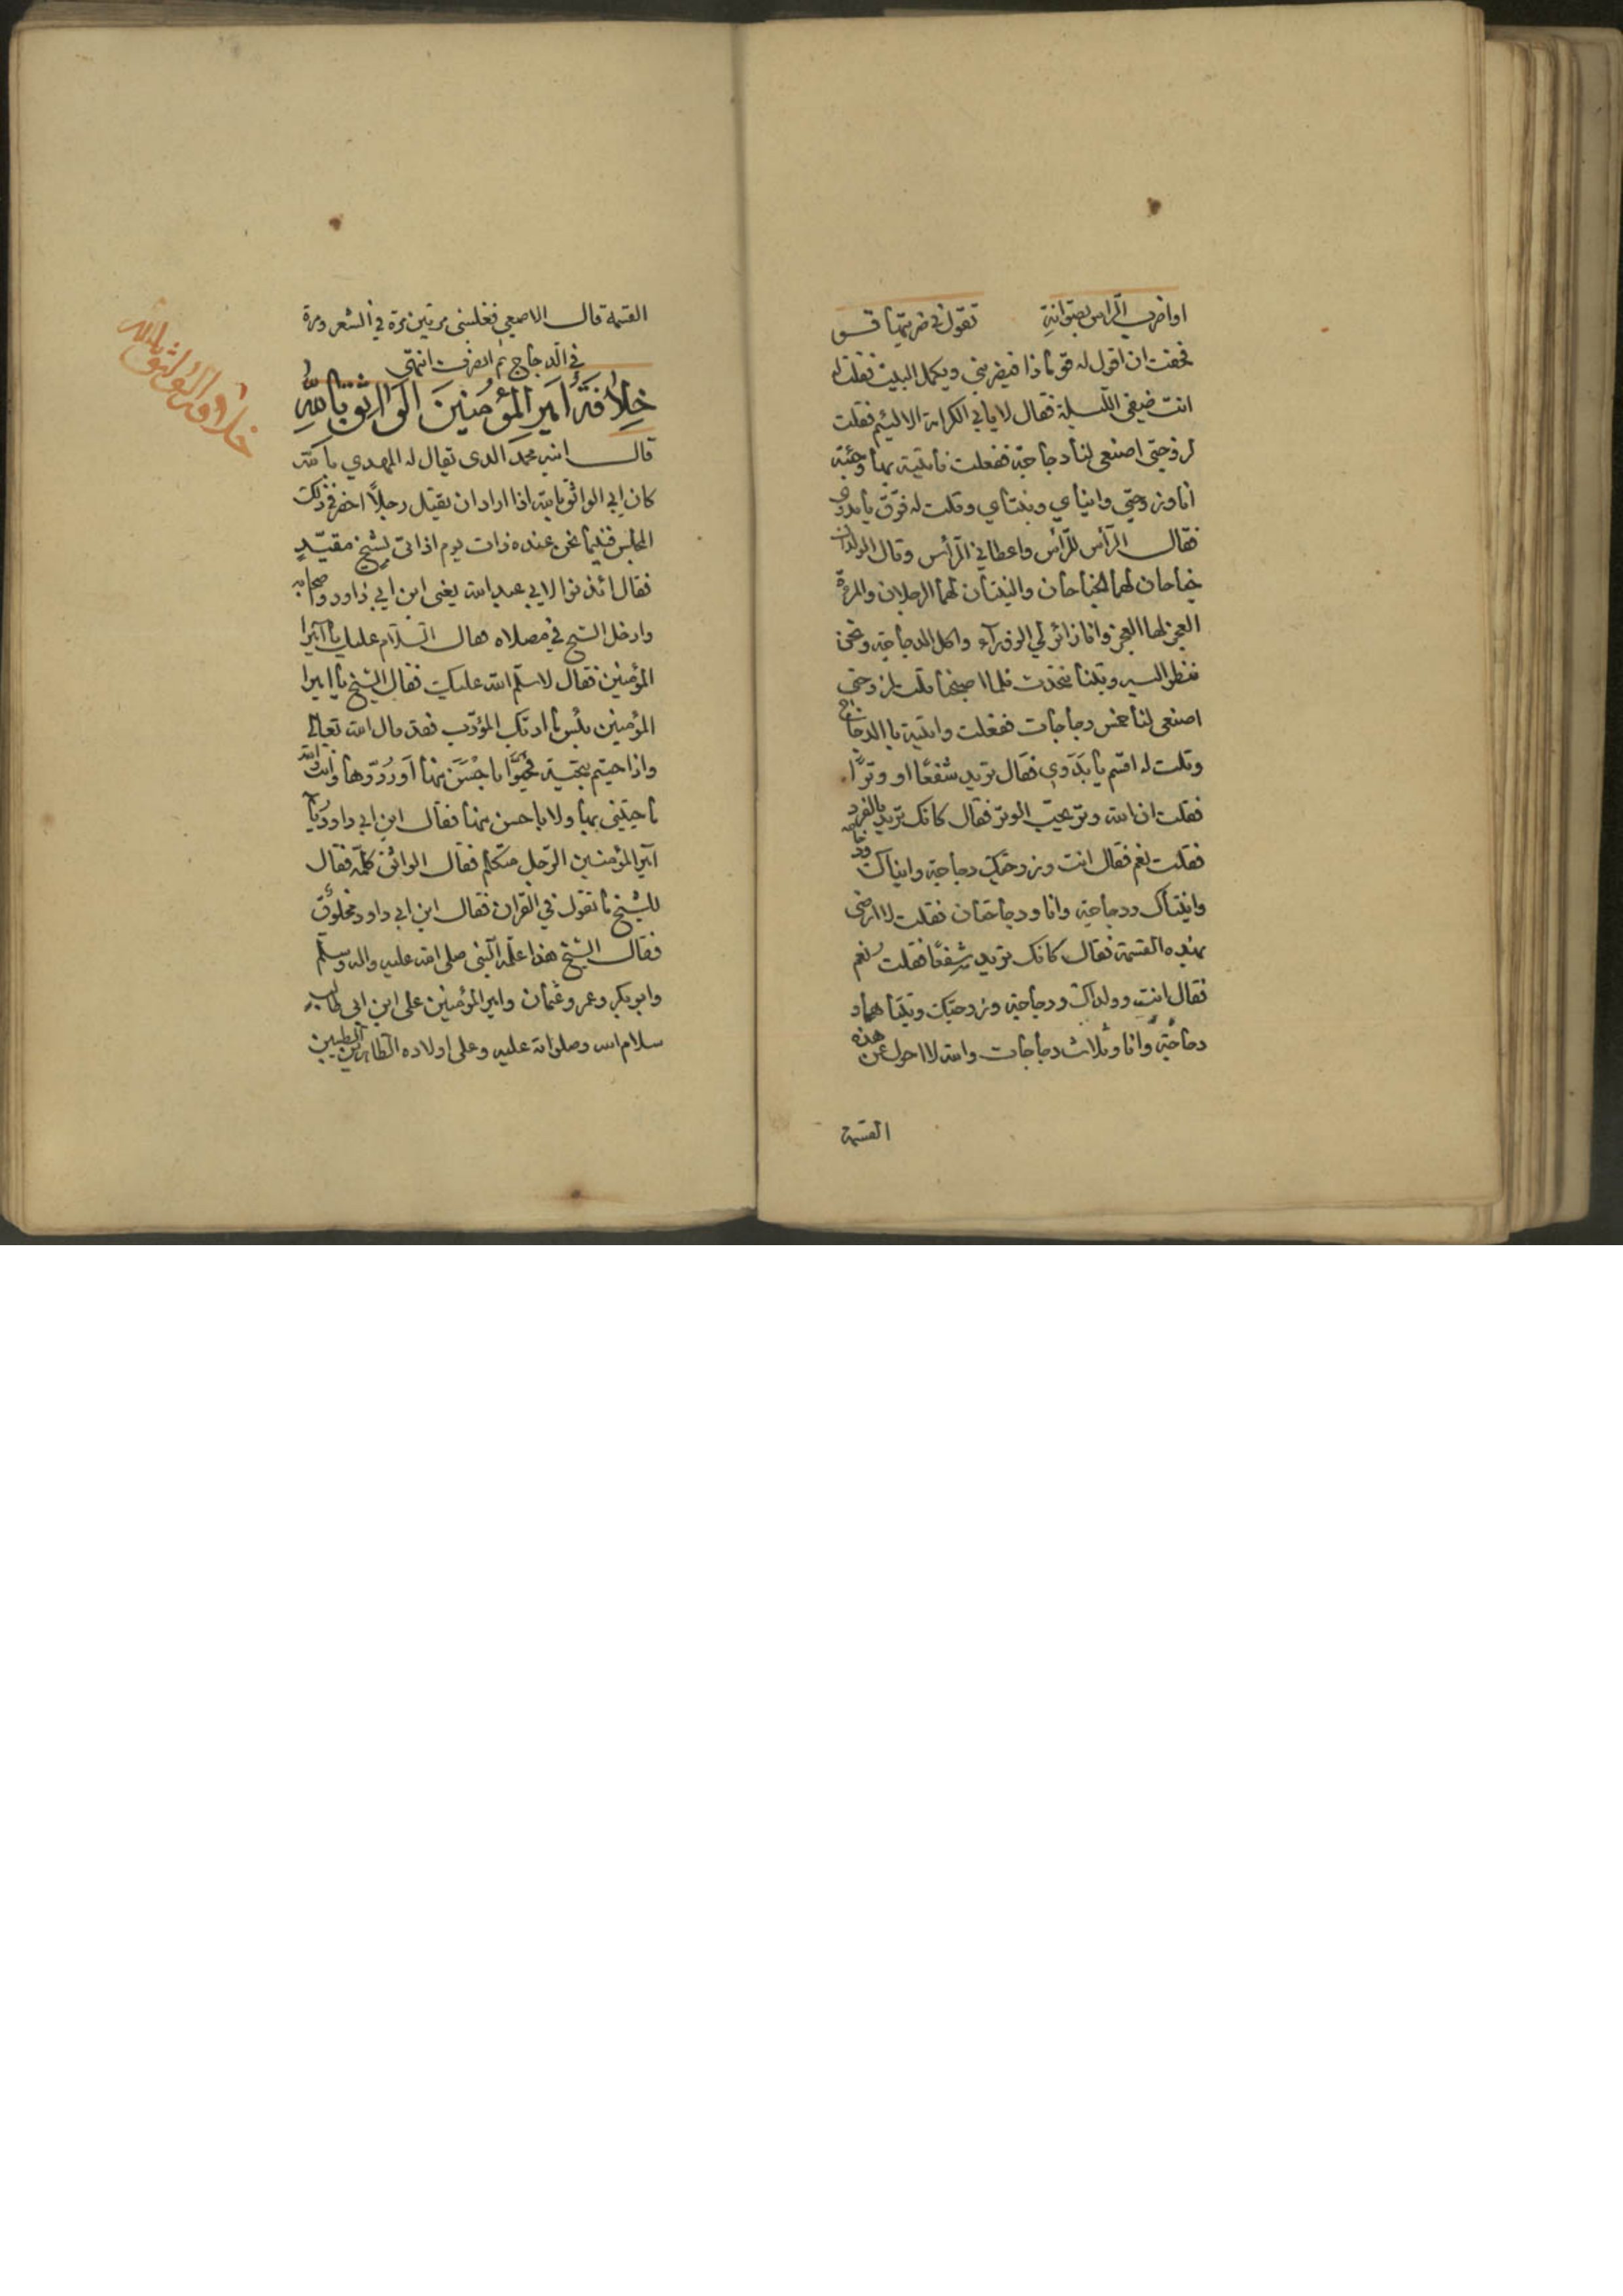 او اضرب الراس بصوانة تقول في ضربتها قو
فخفت ان اقول له قو ماذا فيضربني ويكمل البيت فقلت له
انت ضيفي الليلة فقال لا يابى الكرامة الا اللئيم فقلت
لزوجتي اصنعي لنا دجاجة ففعلت فاتيته بها وجئته
انا وزوجتي وابناي وبنتاي وقلت له فرّق يا بدوي
فقال الرّأس للرّأس واعطاني الرّأس وقال الولدان
جناحان لهما الجناحان والبنتان لهما الرجلان والمرءة
العجز لها العجز وانا زائر لي الزور واكل الدجاجة ونحن
ننظر اليه وبتنا نتحدث فلما اصبحنا قلت لزوجتي
اصنعي لنا خمس دجاجات ففعلت واتيته بالدجاج
وقلت له اقسم يا بدوي فقال تريد شفعًا او وترًا
فقلت ان الله وتر يحب الوتر فقال كانك تريد بالفرد
فقلت نعم فقال انت وزوجتك ودجاجة وابناك ودجاجة
وابنتاك ودجاجة وانا ودجاجتان فقلت لا ارضى
بهذه القسمة فقال كانك تريد شفعًا فقلت نعم
فقال انت وولداك ودجاجة وزوجتك وبنتاهما و
دجاجة وانا وثلاث دجاجات والله لا احول عن هذه
القسمة
القسمة قال الاصمعي فغلبني مرتين مرة في الشعر ومرة
في الدجاج ثم انصرف انتهى
خِلافَةُ اَمِيرِ المُؤمِنينَ الوَاثِق بِاللهِ
خلافة الواثق بالله
قال ابنه محمد الذي يقال له المهدي بالله
كان ابي الواثق بالله اذا اراد ان يقتل رجلًا احضر في ذلك
المجلس فبينما نحن عنده ذات يوم اذ اتى بشيخ مقيّدٍ
فقال ائذنوا لابي عبد الله يعني ابن ابي داود واصحابه
وادخل الشيخ في مصلاه فقال السلام عليك يا امير
المؤمنين فقال لا سلم الله عليك فقال الشيخ يا امير
المؤمنين بئس ما ادبك المؤدب فقد قال الله تعالى
واذا حييتم بتحية فحيّوا باحْسَنَ منها اَو رُدّوها والله
ما حييتني بها ولا باحسن منها فقال ابن ابي داود يا
امير المؤمنين الرّجل متكلم فقال الواثق كلّمه فقال
للشيخ ما تقول في القران فقال ابن ابي داود مخلوق
فقال الشيخ هذا علمه النبي صلى الله عليه واله وسلم
وابو بكر وعمر وعثمان وامير المؤمنين علي ابن ابي طالب
سلام الله وصلواته عليه وعلى اولاده الطاهرين الطيبين